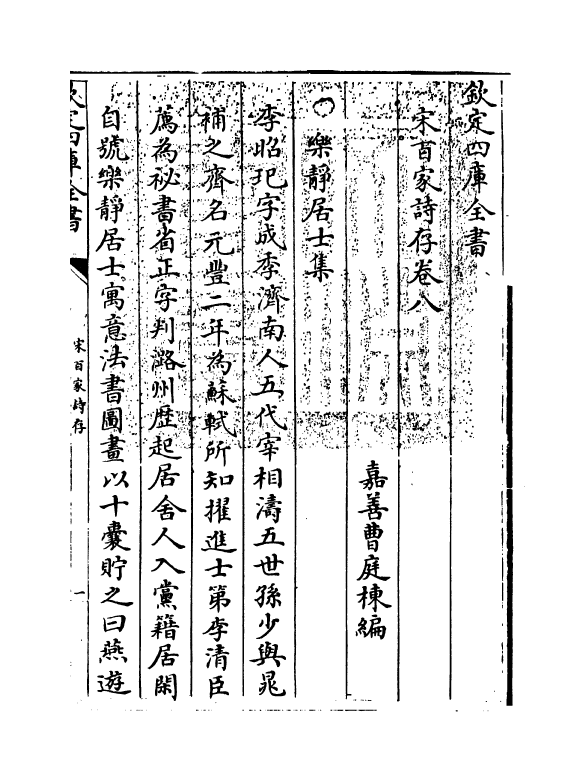 欽定四庫全書
宋百家詩存卷八
嘉善曹庭棟編
樂靜居士集
李昭玘字成季濟南人五代宰相濤五世孫少與晁
補之齊名元豐二年為蘇軾所知擢進士第李清臣
薦為祕書省正字判潞州歴起居舍人入黨籍居閑
自號樂靜居士寓意法書圖畫以十囊貯之曰燕遊
欽定四庫全書
宋百家詩存
一